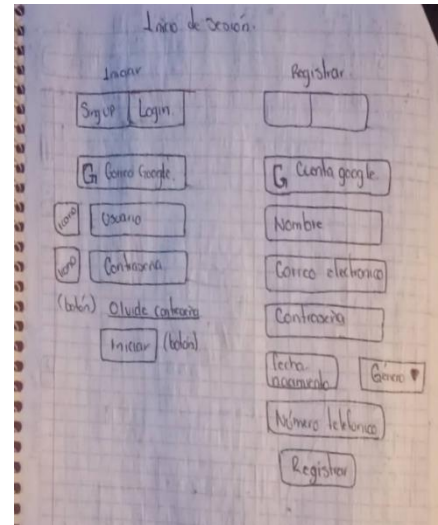 Inico de sesión.
Iniciar
SingUP Login.
G Correo Google.
icono Usuario
icono Contraseña
(botón) Olvide contraseña
Iniciar (botón)
Registrar
G Cuenta google
Nombre
Correo electronico
Contraseña
Fecha
nacimiento Género
Número telefonico
Registrar